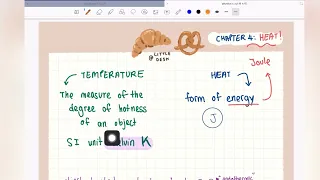 CHAPTER 4: HEAT!
@LITTLE
DESY
Joule
TEMPERATURE
HEAT
The measure of the
degree of hotness
of an object
form of energy
J
SI unit kelvin K